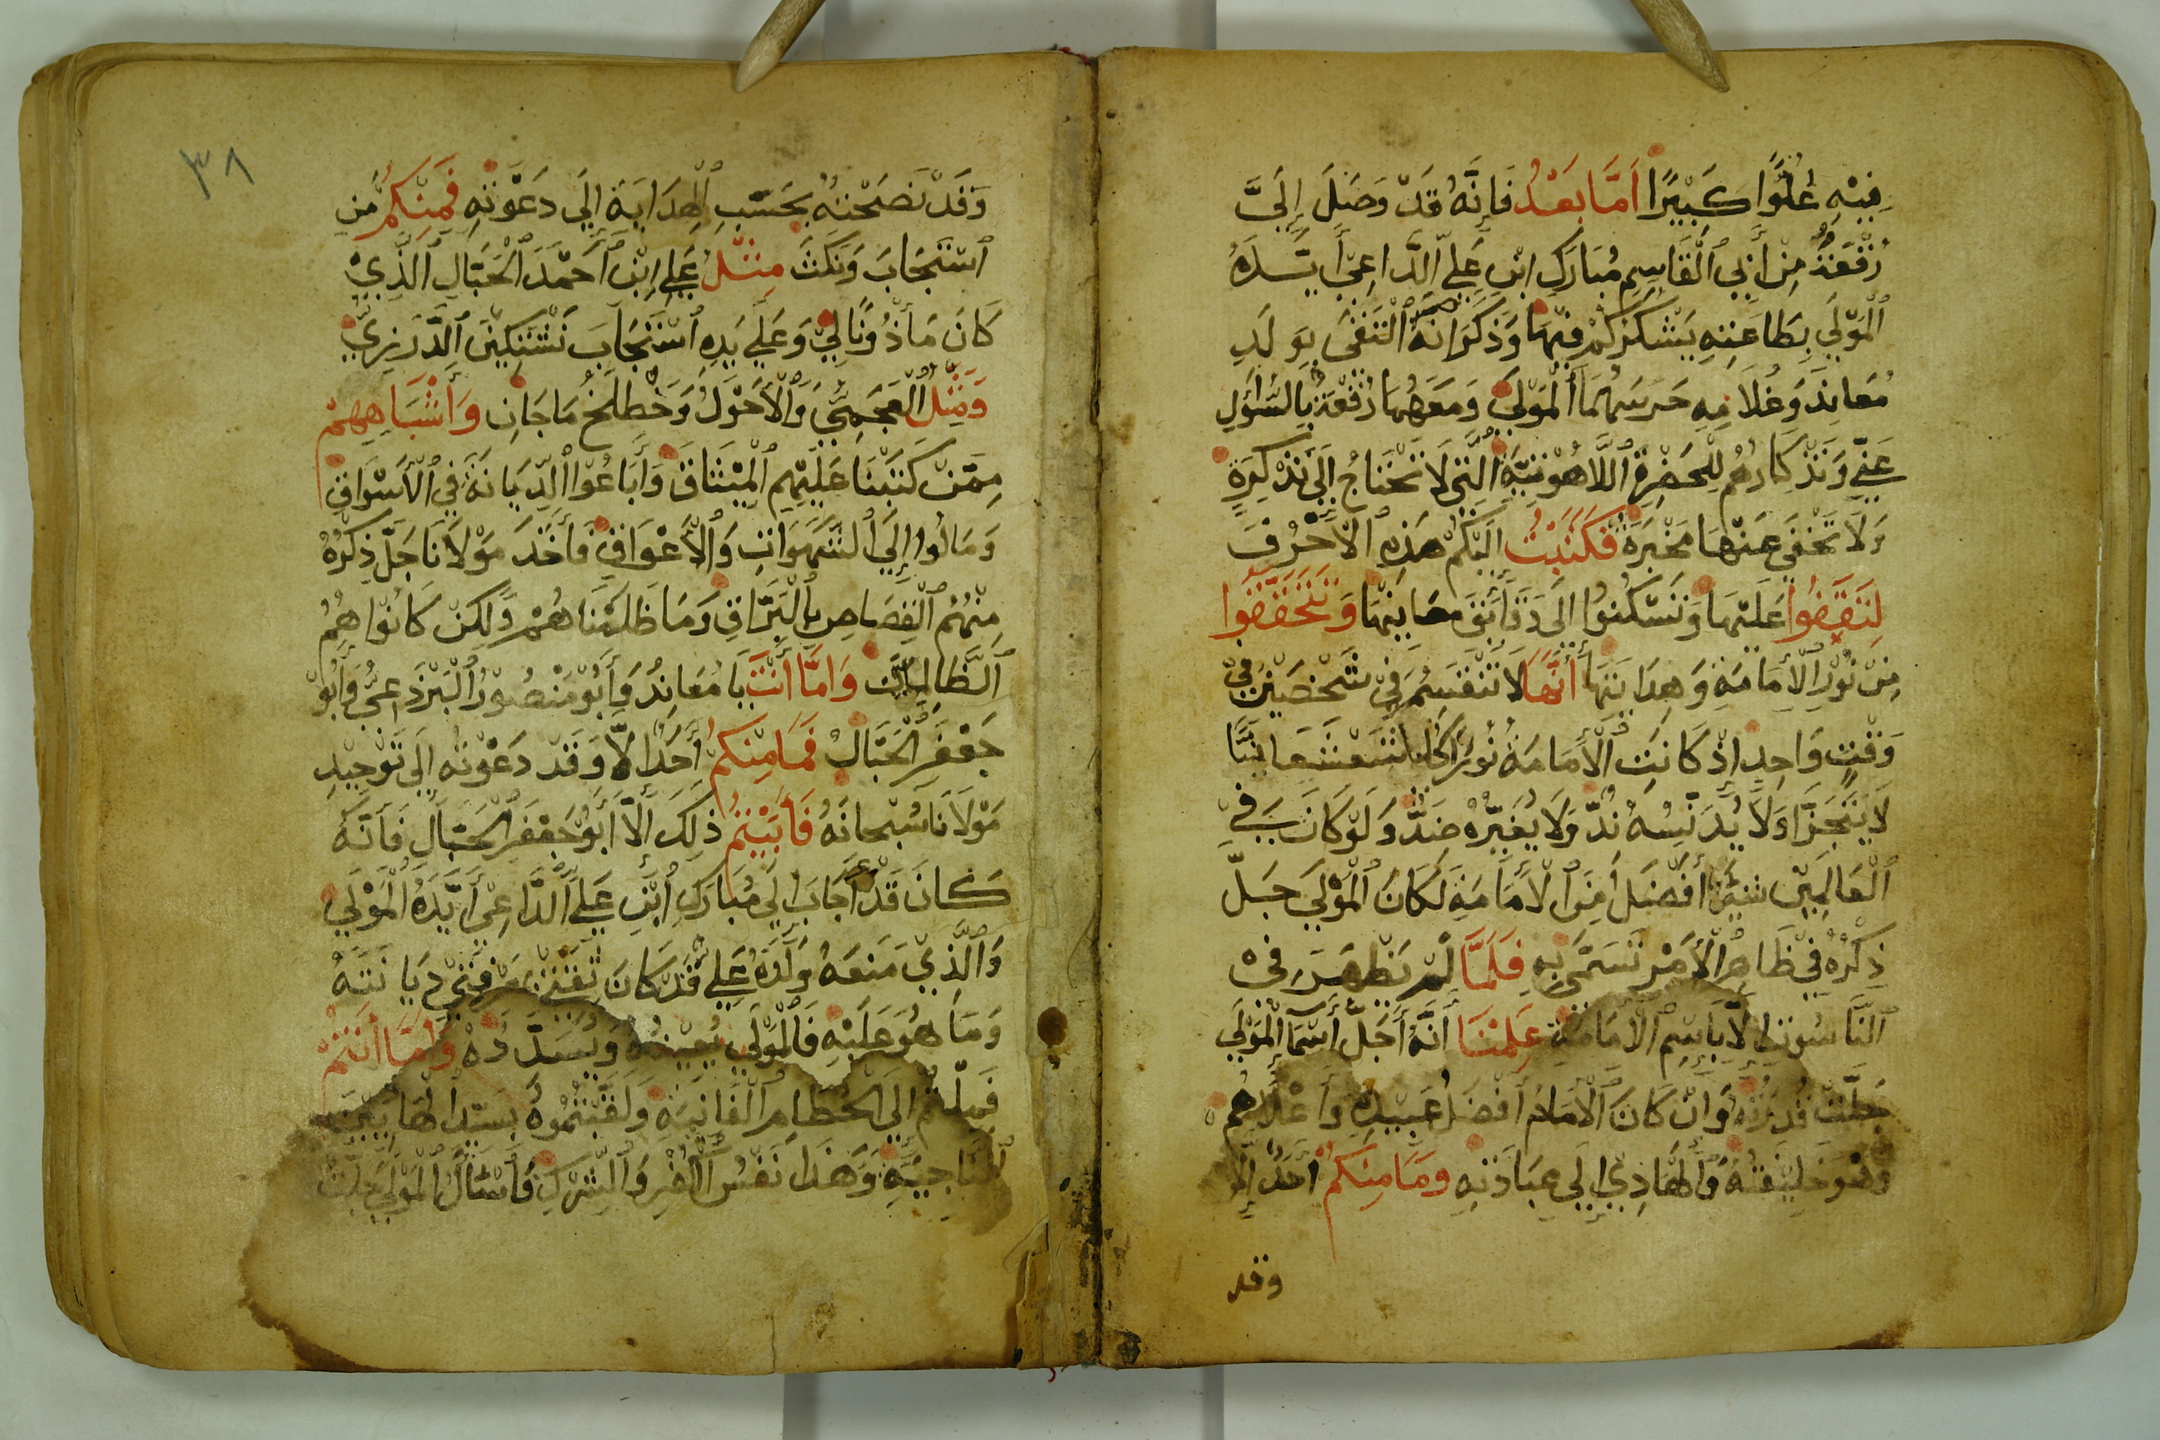 فِيْهِ عُلُوًّا كَبِيْرًا اَمَّا بَعْدُ فَاِنَّهُ قَدْ وَصَلَ إِلَيَّ
رُقْعَةٌ مِنْ أَبِي ٱلْقَاسِمِ مُبَارَكِ ابْنِ عَلِيِّ الدَّاعِيْ أَيَّدَهُ
ٱلْمَوْلَى بِطَاعَتِهِ يَشْكُرُكُمْ فِيْهَا وَذَكَرَ انَّهُ ٱلْتَقَى بِوَلَدِ
مُعَانِدَ وَغُلَامِهِ حَرَسَهُمَا ٱلْمَوْلَى وَمَعَهُمَا رُقْعَةٌ بِالسُّؤَلِ
عَنِّي وَتَذْكَارُهُمْ لِلْحَضْرَةِ ٱللَّاهُوْتِيَّةِ الَّتِي لَا تَحْتَاجُ اِلَى تَذْكِرَةٍ
وَلَا تَخْفَى عَنْهَا مَخْبَرَةٌ فَكَتَبْتُ اِلَيْكُمْ هَذِهِ ٱلْأَحْرُفَ
لِتَقِفُوا عَلَيْهَا وَتَسْكُنُوا اِلَى دَقَائِقَ معَانِيْهَا وَتَتَحَقَّقُوا
مِنْ نُوْرِ ٱلْأَمَامَةِ وَهِدَايَتِهَا أَنَّهَا لَا تَنْقَسِمُ فِيْ شَخْصَيْنِ فِيْ
وَقْتٍ وَاحِدٍ اِذْ كَانَتِ ٱلْأَمَامَةُ نُوْرًا كُلِّيًا شَعْشَعَانِيًّا
لَا يَتَجَزَّا وَلَا يُدَنِّسُهُ نِدٌّ وَلَا يُغَيِّرُهُ ضِدٌّ وَلَوْ كَانَ فِيْ
ٱلْعَالَمِيْنَ شَيْئٌ أَفْضَلَ مِنَ ٱلْأَمَامَةِ لَكَانَ ٱلْمَوْلَى جَلَّ
ذِكْرُهُ فِيْ ظَاهِرِ ٱلْأَمْرِ تَسَمَّى بِهِ فَلَمَّا لَمْ يَظْهَرَ فِيْ
ٱلنَّاسُوْتِ اِلَّا بِاسْمِ ٱلْأَمَامَةِ عَلِمْنَا أَنَّهُ أَجَلُّ أَسْمَآءِ ٱلْمَوْلَى
جَلَّتْ قُدْرَتُهُ وَاِنْ كَانَ ٱلْأَمَامُ أَفْضَلُ عَبِيْدِهِ وَأَعْلَاهُمْ
وَهُوَ خَلِيْفَتُهُ وَٱلْهَادِيْ اِلَى عِبَادَتِهِ وَمَا مِنْكُمْ أَحَدٌ اِلَّا
وقد
٣٨
وَقَدْ نَصَحْتُهُ بِحَسْبِ ٱلْهِدَايَةِ اِلَى دَعْوَتِهِ فَمِنْكُمْ مَنِ
ٱسْتَجَابَ وَنَكَثَ مِثْلُ عَلِي اِبْنِ أَحْمَدَ ٱلْحَبَّالِ الَّذِيْ
كَانَ مَأْذُوْنًا لِيْ وَعَلَى يَدِهِ ٱسْتَجَابَ نَشْتَكِيْنَ ٱلدَّرَزِيِّ
وَمِثْلُ ٱلْعَجَمِيِّ وَٱلْأَحْوَلُ وَخُطْلُخُ مَاجَانِ وَأَشْبَاهِهِمْ
مِمَّنْ كَتَبْنَا عَلَيْهِمِ ٱلْمِيْثَاقَ وَأَبَاعُوْا ٱلدِّيَانَةَ فِي ٱلْأَسْوَاقِ
وَمَالُوا اِلَى ٱلشَّهَوَاتِ وَٱلْأَعْوَاقِ فَأَخَذَ مَوْلَانَا جَلَّ ذِكْرُهُ
مِنْهُمُ ٱلْقِصَاصَ بِٱلْبَرَّاقِ وَمَا ظَلَمْنَاهُمْ وَلَكِنْ كَانُوْا هُمُ
ٱلظَّالِمِيْنَ وَاَمَّا أَنْتَ يَا مُعَانِدُ وَأَبُوْ مَنْصُوْرُ ٱلْبَرْذَعِيُّ وَأَبُوْ
جَعْفَرِ ٱلْحَبَّالُ فَمَا مِنْكُمْ أَحَدٌ اِلَّا وَقَدْ دَعَوْتُهُ اِلَى تَوْحِيْدِ
مَوْلَانَا سُبْحَانَهُ فَأَبَيْتُمْ ذٰلِكَ اِلَّا أَبُوْ جَعْفَرِ ٱلْحَبَّالِ فَاَنَّهُ
كَانَ قَدْ أَجَابَ اِلَى مُبَارَكِ ٱبْنِ عَلِيِّ ٱلدَّاعِيْ أَيَّدَهُ ٱلْمَوْلَى
وَٱلَّذِيْ مَنَعَهُ وَلَدُهُ عَلِي قَدْ كَانَ ثِقَتِيْ بِمَعْرِفَتِيْ دِيَانَتَهُ
وَمَا هُوَ عَلَيْهِ فَالْمَوْلَى يُعِيْنُهُ وَيُسَدِّدُهُ وَاَمَّا أَنْتُمْ
فَمِلْتُمْ اِلَى ٱلْحُطَامِ ٱلْفَانِيَةِ وَلَقَّبْتُمُوْهُ بِسَيِّدِ ٱلْهَادِيْيْنَ
ٱلنَّاجِيَةِ وَهَذَا نَفْسُ ٱلْكُفْرِ وَٱلشِّرْكِ وَأَسْئَالُ ٱلْمَوْلَى جَلَّتْ